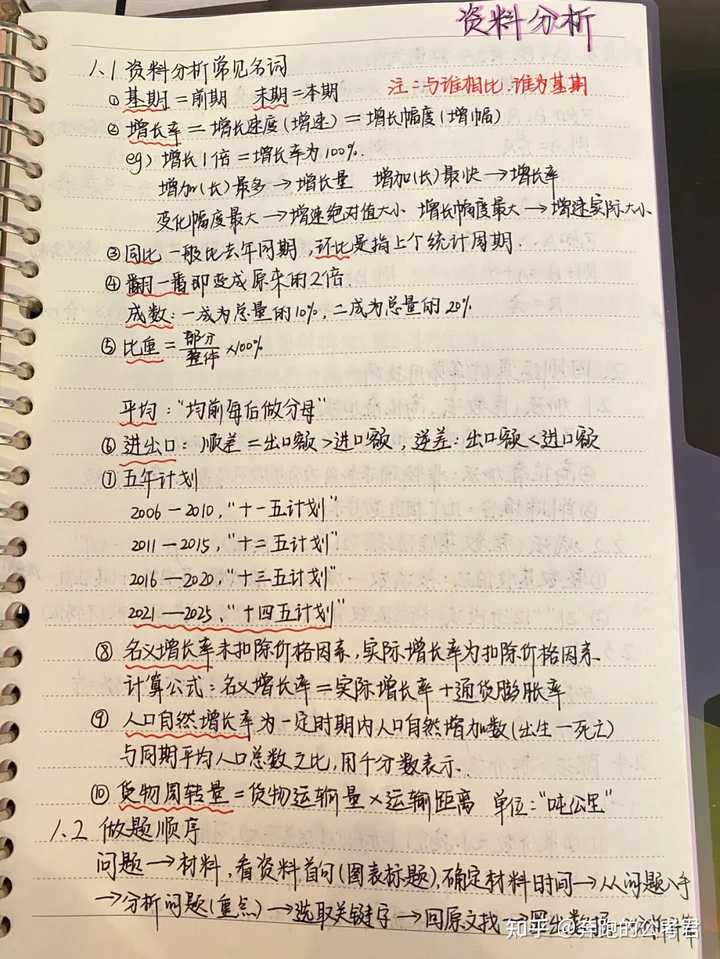 资料分析
1.1 资料分析常见名词
①基期=前期 末期=本期 注:与谁相比,谁为基期
②增长率=增长速度(增速)=增长幅度(增幅)
eg) 增长1倍=增长率为100%.
增加(长)最多→增长量 增加(长)最快→增长率
变化幅度最大→增速绝对值大小 增长幅度最大→增速实际大小
③同比一般比去年同期,环比是指上个统计周期.
④翻一番即变成原来的2倍.
成数:一成为总量的10%,二成为总量的20%
⑤比重=部分/整体×100%
平均:“均前每后做分母”
⑥进出口:顺差=出口额>进口额,逆差:出口额<进口额
⑦五年计划
2006—2010,“十一五计划”
2011—2015,“十二五计划”
2016—2020,“十三五计划”
2021—2025,“十四五计划”
⑧名义增长率未扣除价格因素,实际增长率为扣除价格因素.
计算公式:名义增长率=实际增长率+通货膨胀率
⑨人口自然增长率为一定时期内人口自然增加数(出生-死亡)
与同期平均人口总数之比,用千分数表示.
⑩货物周转量=货物运输量×运输距离 单位:“吨公里”
1.2 做题顺序
问题→材料,看资料首句(图表标题),确定材料时间→从问题入手
→分析问题(重点)→选取关键字→回原文找→
知乎 @奔跑的公考君